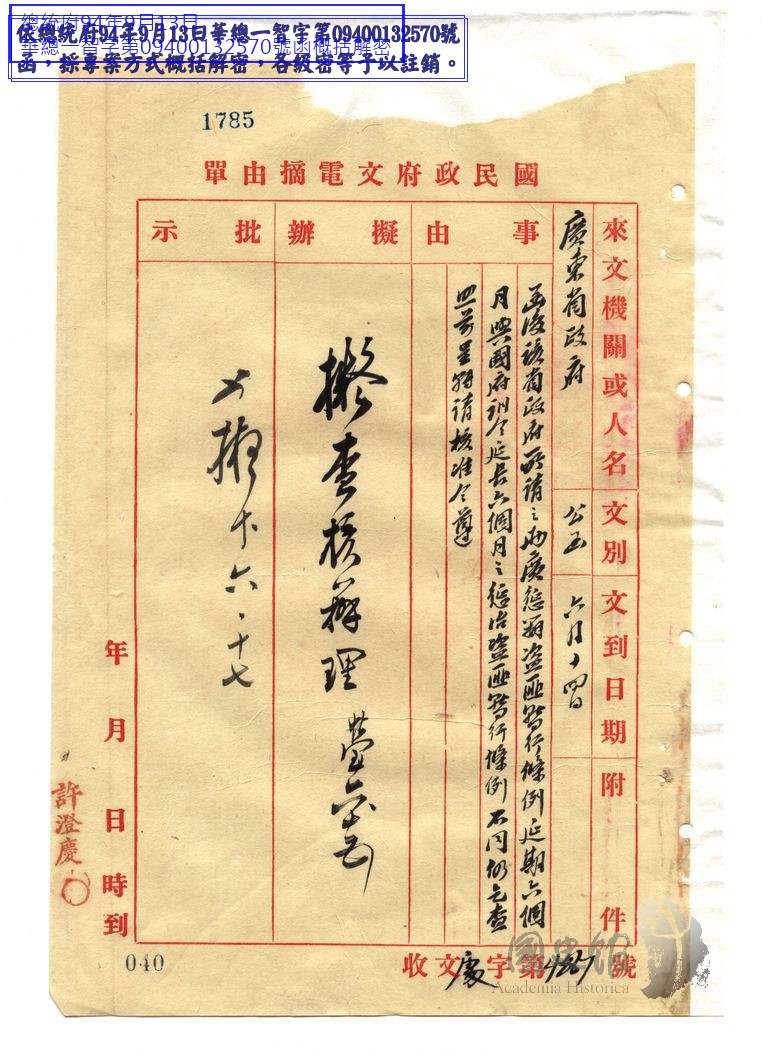 總統府94年9月13日
華總一智字第09400132570號函概括解密
依總統府94年9月13日華總一智字第09400132570號
函，採專案方式概括解密，各級密等予以註銷。
1785
國民政府文電摘由單
來文機關或人名
廣東省政府
文別
公函
文到日期
六月十四日
附件
事由
函復該省政府所請之兩廣懲辦盜匪暫行條例延期六個
月與國府訓令延長六個月之懲治盜匪暫行條例不同仍乞查
照前呈轉請核准令遵
擬辦
擬查核辦理
批示
十六、十七
年月日時到
許澄慶
收文處字第號
040
國史館
Academia Historica